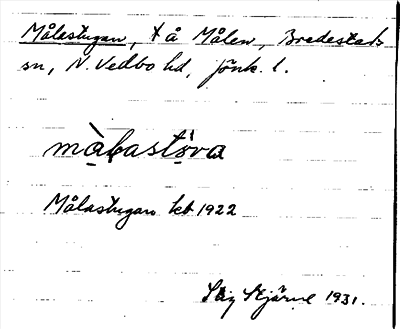 Målastugan, t å Målen, Bredestads
sn, N. Vedbo hd, Jönk. l.
màḷastòva
Målastugan kbt 1922
Stig Stjärne 1931.